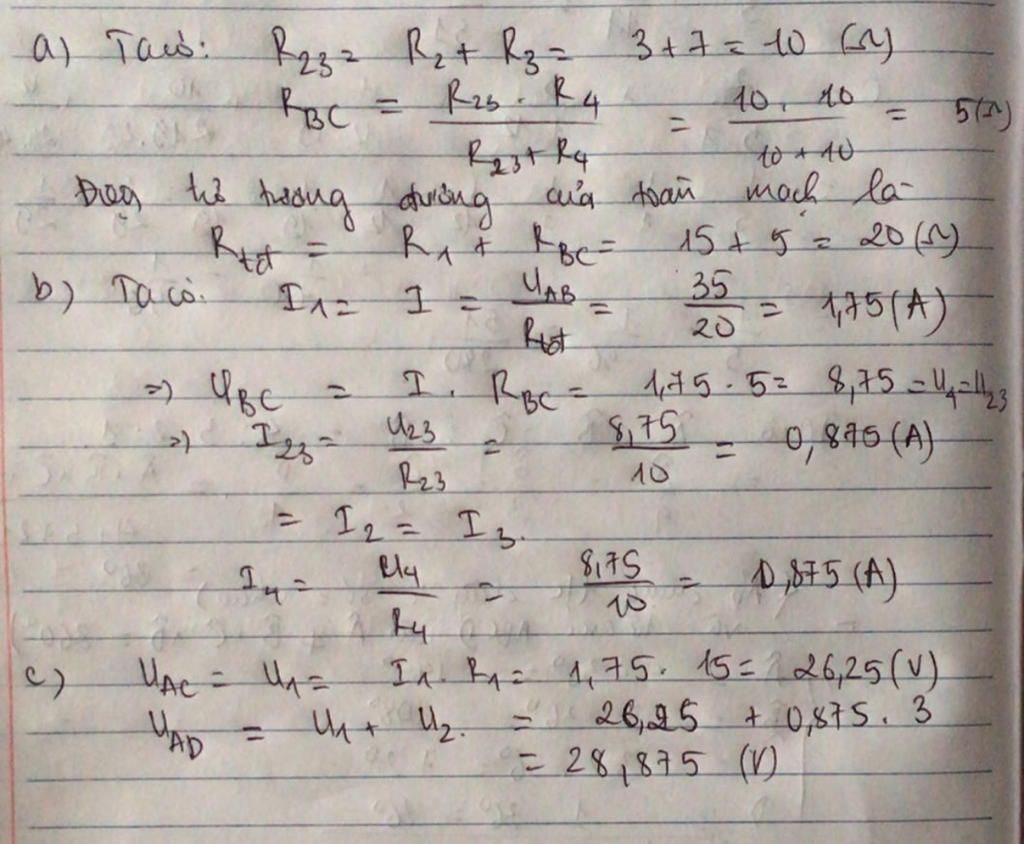 a) Ta có: R23 = R2 + R3 = 3 + 7 = 10 (Ω)
RBC = R23 . R4 / R23 + R4 = 10 . 10 / 10 + 10 = 5 (Ω)
Điện trở tương đương của toàn mạch là
Rtđ = R1 + RBC = 15 + 5 = 20 (Ω)
b) Ta có: I1 = I = UAB / Rtđ = 35 / 20 = 1,75 (A)
=> UBC = I . RBC = 1,75 . 5 = 8,75 = U4 = U23
=> I23 = U23 / R23 = 8,75 / 10 = 0,875 (A)
= I2 = I3.
I4 = U4 / R4 = 8,75 / 10 = 0,875 (A)
c) UAC = U1 = I1 . R1 = 1,75 . 15 = 26,25 (V)
UAD = U1 + U2. = 26,25 + 0,875 . 3
= 28,875 (V)